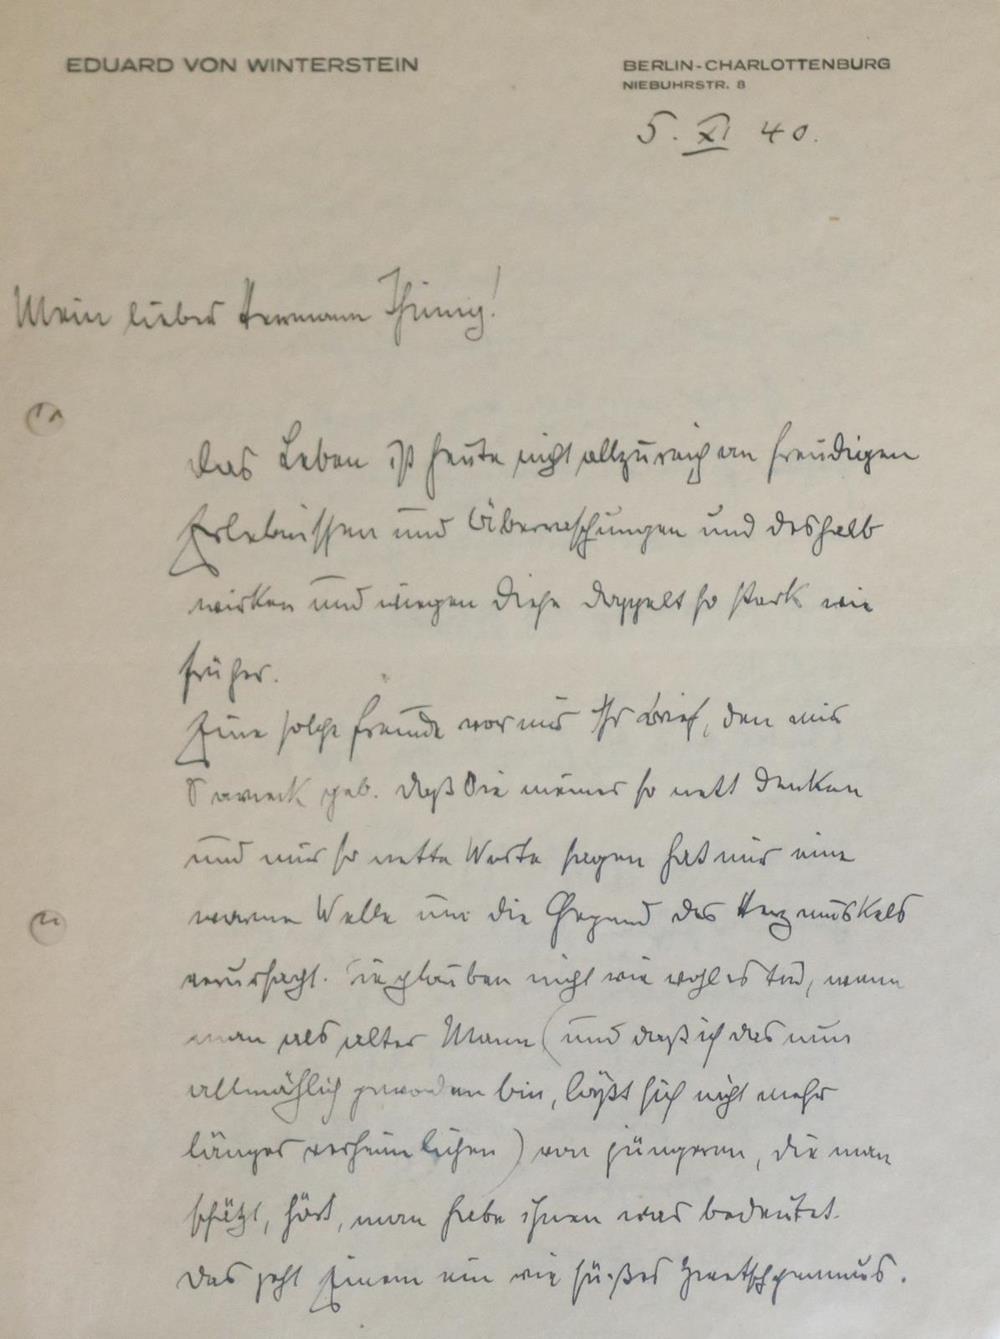 EDUARD VON WINTERSTEIN
BERLIN-CHARLOTTENBURG
NIEBUHRSTR. 8
5. XI 40.
Mein lieber Hermann Thimig!
Das Leben ist heute nicht allzureich an freudigen
Erlebnissen und Überraschungen und deshalb
wirken und wiegen diese doppelt so stark wie
früher.
Eine solche Freude war mir Ihr Brief, den mir
gab. Daß Sie meiner so nett denken
und mir so nette Worte sagen hat mir eine
warme Welle um die Gegend des Herzmuskels
verursacht. Sie glauben nicht wie wohl es tut, wenn
man als alter Mann (und daß ich das nun
allmählich geworden bin, läßt sich nicht mehr
länger verheimlichen) von jüngeren, die man
schätzt, hört, man habe ihnen was bedeutet.
Das geht Einem ein wie süßer